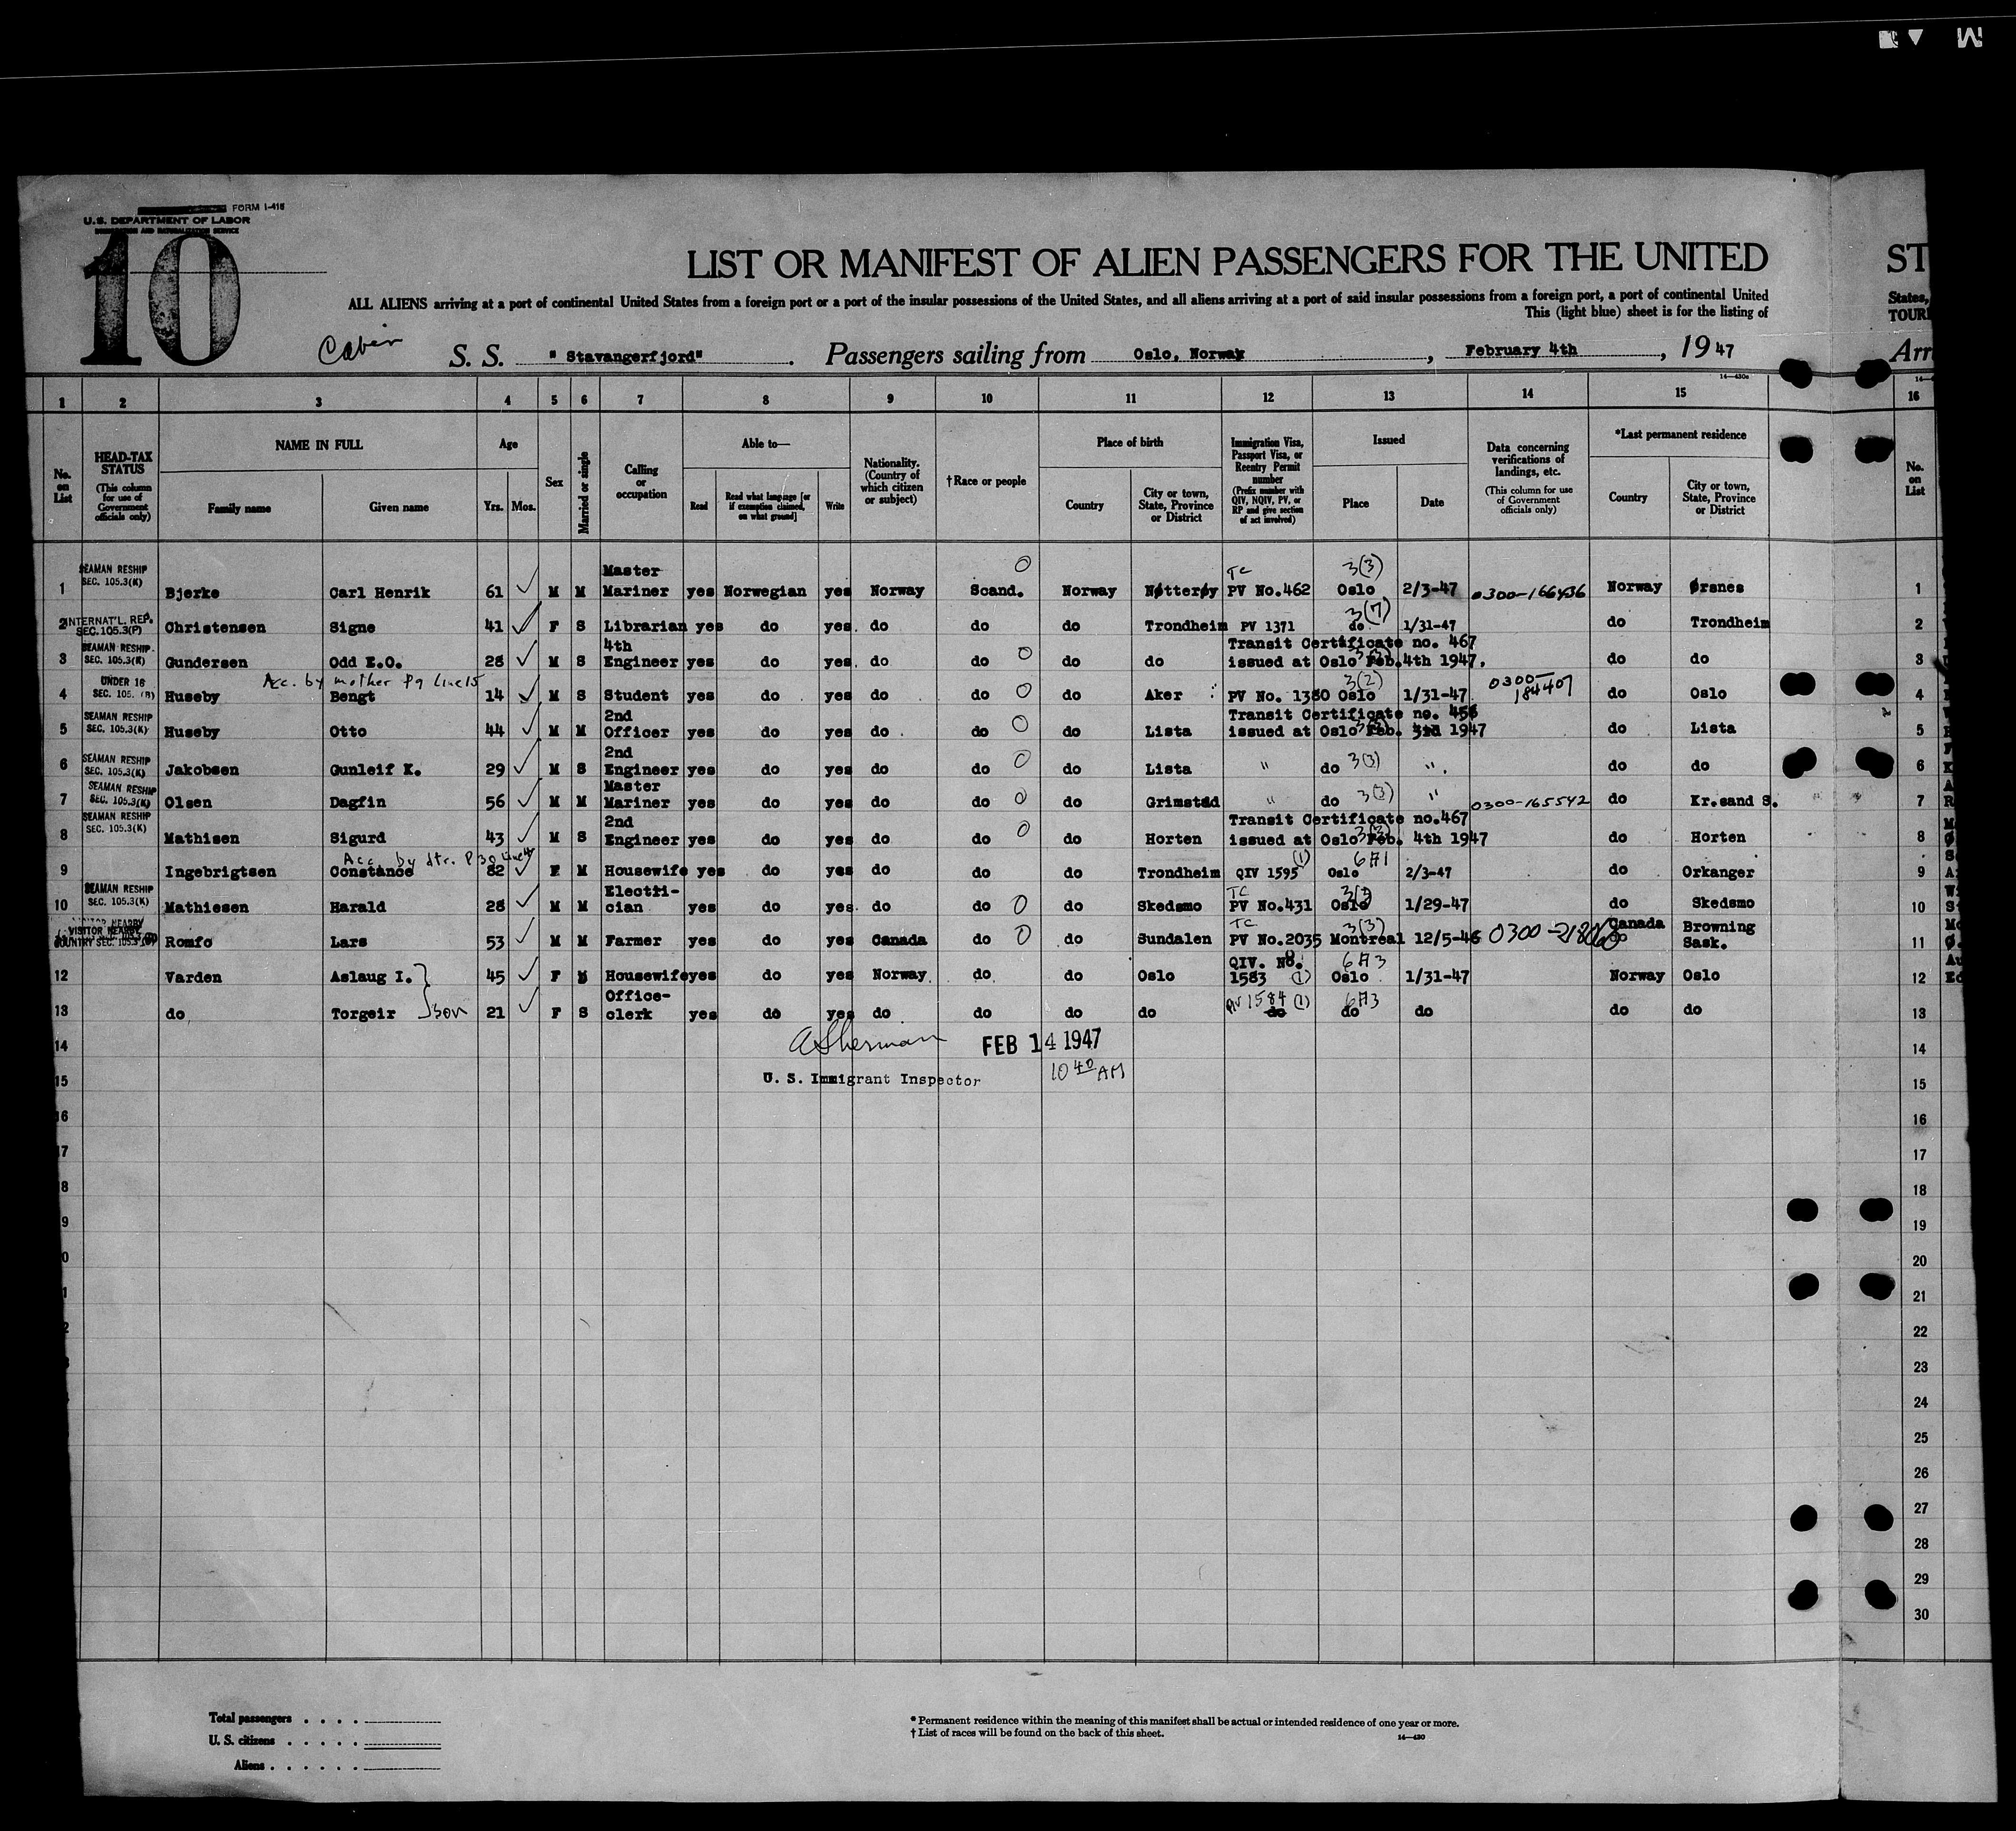 FORM I-415
U.S. DEPARTMENT OF LABOR
IMMIGRATION AND NATURALIZATION SERVICE
10
LIST OR MANIFEST OF ALIEN PASSENGERS FOR THE UNITED
ST
ALL ALIENS arriving at a port of continental United States from a foreign port or a port of the insular possessions of the United States, and all aliens arriving at a port of said insular possessions from a foreign port, a port of continental United
States,
This (light blue) sheet is for the listing of
TOURI
Cabin S. S. "Stavangerfjord". Passengers sailing from Oslo, Norway, February 4th, 1947
Arri
14—430a
1 2 3 4 5 6 7 8 9 10 11 12 13 14 15 16
No. on List
HEAD-TAX STATUS (This column for use of Government officials only)
NAME IN FULL Family name Given name
Age Yrs. Mos.
Sex
Married or single
Calling or occupation
Able to— Read Read what language [or if exemption claimed, on what ground] Write
Nationality. (Country of which citizen or subject)
†Race or people
Place of birth Country City or town, State, Province or District
Immigration Visa, Passport Visa, or Reentry Permit number (Prefix number with QIV, NQIV, PV, or RP and give section of act involved)
Issued Place Date
Data concerning verifications of landings, etc. (This column for use of Government officials only)
*Last permanent residence Country City or town, State, Province or District
No. on List
1 SEAMAN RESHIP SEC. 105.3(K) Bjerke Carl Henrik 61 ✓ M M Master Mariner yes Norwegian yes Norway Scand. O Norway Nøtterøy TC PV No.462 3(3) Oslo 2/3-47 0300-166436 Norway Ørsnes 1
2 INTERNAT'L. REP. SEC. 105.3(P) Christensen Signe 41 ✓ F S Librarian yes do yes. do do do Trondheim PV 1371 3(7) do 1/31-47 do Trondheim 2
3 SEAMAN RESHIP. SEC. 105.3(K) Gundersen Odd E.O. 28 ✓ M S 4th Engineer yes do yes. do do O do do Transit Certificate no. 467 issued at Oslo Feb.4th 1947. do do 3
Acc. by mother P9 line 15
4 UNDER 16 SEC. 105. Huseby Bengt 14 ✓ M S Student yes do yes do do O do Aker PV No. 1380 3(2) Oslo 1/31-47 0300-184407 do Oslo 4
5 SEAMAN RESHIP SEC. 105.3(K) Huseby Otto 44 ✓ M M 2nd Officer yes do yes do do O do Lista Transit Certificate no. 456 issued at Oslo Feb. 3rd 1947 do Lista 5
6 SEAMAN RESHIP SEC. 105.3(K) Jakobsen Gunleif K. 29 ✓ M S 2nd Engineer yes do yes do do O do Lista " do 3(3) " do do 6
7 SEAMAN RESHIP SEC. 105.3(K) Olsen Dagfin 56 ✓ M M Master Mariner yes do yes do do O do Grimstad " do 3(3) " 0300-165542 do Kr.sand S. 7
8 SEAMAN RESHIP SEC. 105.3(K) Mathisen Sigurd 43 ✓ M S 2nd Engineer yes do yes do do O do Horten Transit Certificate no.467 issued at Oslo Feb. 4th 1947 do Horten 8
Acc. by dtr. P 30
9 Ingebrigtsen Constance 82 ✓ F M Housewife yes do yes do do do Trondheim QIV 1595 (1) Oslo 2/3-47 do Orkanger 9
10 SEAMAN RESHIP SEC. 105.3(K) Mathiesen Harald 28 ✓ M M Electri-cian yes do yes. do do O do Skedsmo TC PV No.431 Oslo 1/29-47 do Skedsmo 10
VISITOR NEARBY COUNTRY SEC. 105.3 Romfo Lars 53 ✓ M M Farmer yes do yes Canada do O do Sundalen TC PV No.2035 3(3) Montreal 12/5-46 Canada Browning Sask. 11
12 Varden Aslaug I. 45 ✓ F Housewife yes do yes Norway. do do Oslo QIV. No. 1583 (1) Oslo 1/31-47 Norway Oslo 12
13 do Torgeir son 21 ✓ F S Office-clerk yes do yes do do do do 1584 (1) do do do do do 13
14 FEB 14 1947 14
15 U. S. Immigrant Inspector 10 40 AM 15
16 16
17 17
8 18
9 19
0 20
1 21
2 22
23
24
25
26
27
28
29
30
Total passengers . . . .
U. S. citizens . . . . .
Aliens . . . . . .
* Permanent residence within the meaning of this manifest shall be actual or intended residence of one year or more.
† List of races will be found on the back of this sheet.
14—430